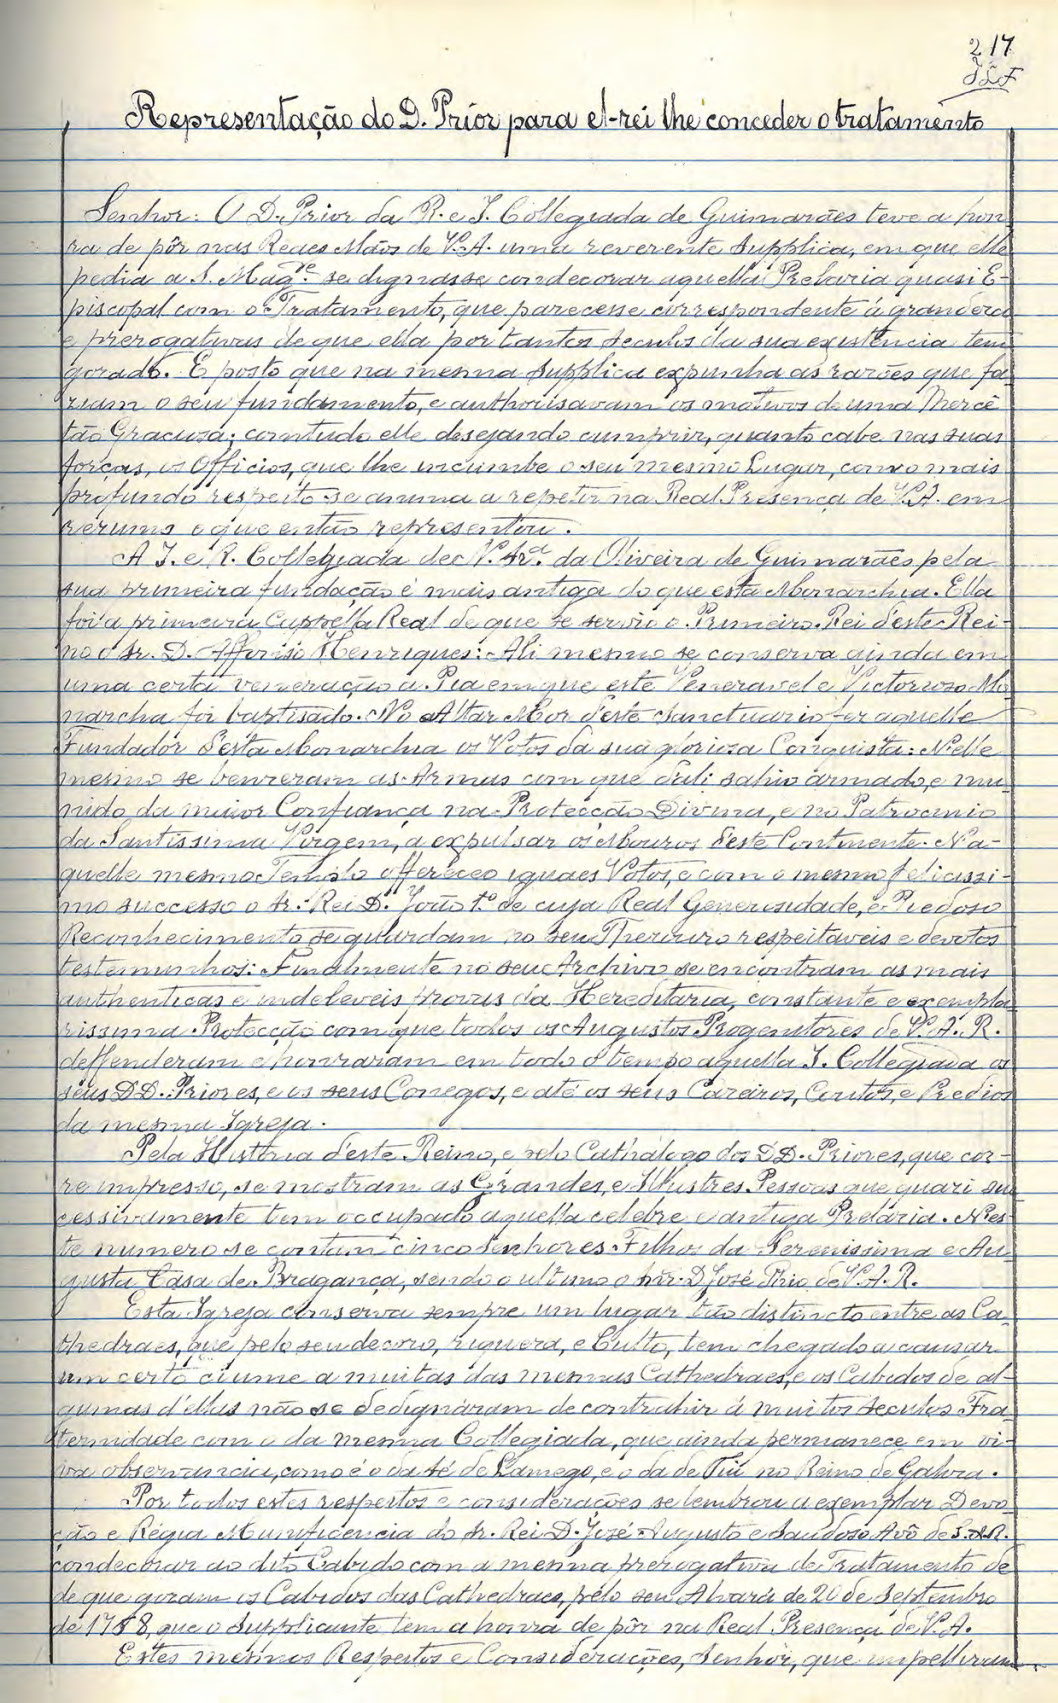 217
Representação do D. Prior para el-rei lhe conceder o tratamento
Senhor: O D. Prior da R. e I. Collegiada de Guimarães teve a hon-
ra de pôr nas Reaes Mãos de V. A. uma reverente Supplica, em que elle
pedia a S. Mag.de se dignasse condecorar aquella Prelazia quasi E-
piscopal com o Tratamento, que parecesse correspondente á grandeza
e prerogativas de que ella por tantos seculos da sua existencia tem
gozado. E posto que na mesma Supplica expunha as razões que fa-
ziam o seu fundamento, e authorisavam os motivos de uma Mercê
tão Graciosa; comtudo elle desejando cumprir, quanto cabe nas suas
forças, os Officios, que lhe incumbe o seu mesmo Lugar, com o mais
profundo respeito se anima a repetir na Real Presença de V. A. em
rezumo o que então representou.
A I. e R. Collegiada de N. Sr.a da Oliveira de Guimarães pela
sua primeira fundação é mais antiga do que esta Monarchia. Ella
foi a primeira Cappella Real de que se servio o Primeiro Rei d'este Rei-
no o Sr. D. Affonso Henriques: Ali mesmo se conserva ainda em
uma certa veneração a Pia em que este Veneravel e Victoriozo Mo-
narcha foi baptisado. No Altar Mor d'este Sanctuario fez aquelle
Fundador d'esta Monarchia os Votos da sua glorioza Conquista: N'elle
mesmo se benzeram as Armas com que d'ali sahio armado, e mu-
nido da maior Confiança na Protecção Divina, e no Patrocinio
da Santissima Virgem, a expulsar os Mouros d'este Continente. N'a-
quelle mesmo Templo offereceo iguaes Votos, e com o mesmo felicissi-
mo successo o Sr. Rei D. João 1.º de cuja Real Generosidade, e Piedoso
Reconhecimento se guardam no seu Thezouro respeitaveis e devotos
testeminhos: Finalmente no seu Archivo se encontram as mais
authenticas e indeleveis provas da Hereditaria, constante e exempla-
rissima Protecção com que todos os Augustos Progenitores de V. A. R.
deffenderam e honraram em todo o tempo aquella I. Collegiada os
seus DD. Priores, e os seus Conegos, e até os seus Cazeiros, Coutos, e Predios
da mesma Igreja.
Pela Histtria d'este Reino, e pelo Cathálogo dos DD. Priores, que cor-
re impresso, se mostram as Grandes, e Illustres Pessoas que quazi su-
cessivamente tem occupado aquella celebre e antiga Prelazia. N'es-
te numero se contam cinco Senhores Filhos da Serenissima e Au-
gusta Casa de Bragança, sendo o ultimo o Snr. D. José Thio de V. A. R.
Esta Igreja conserva sempre um lugar tão distincto entre as Ca-
thedraes, que pelo seu decoro, riqueza, e Culto, tem chegado a causar
um certo ciume a muitas das mesmas Cathedraes, e os Cabidos de al-
gumas d'ellas não se dedignáram de contrahir á muitos seculos Fra-
ternidade com o da mesma Collegiada, que ainda permanece em vi-
va observancia, como é o da Sé de Lamego, e o da de Tui no Reino de Galiza.
Por todos estes respeitos e considerações se lembrou a exemplar Devo-
ção e Régia Munificencia do Sr. Rei D. José Augusto e Saudoso Avô de S. A. R.
condecorar ao dito Cabido com a mesma prerogativa de Tratamento de
de que gozam os Cabidos das Cathedraes, pelo seu Alvará de 20 de Septembro
de 1768, que o Supplicante tem a honra de pôr na Real Presença de V. A.
Estes mesmos Respeitos e Considerações, Senhor, que impelliram